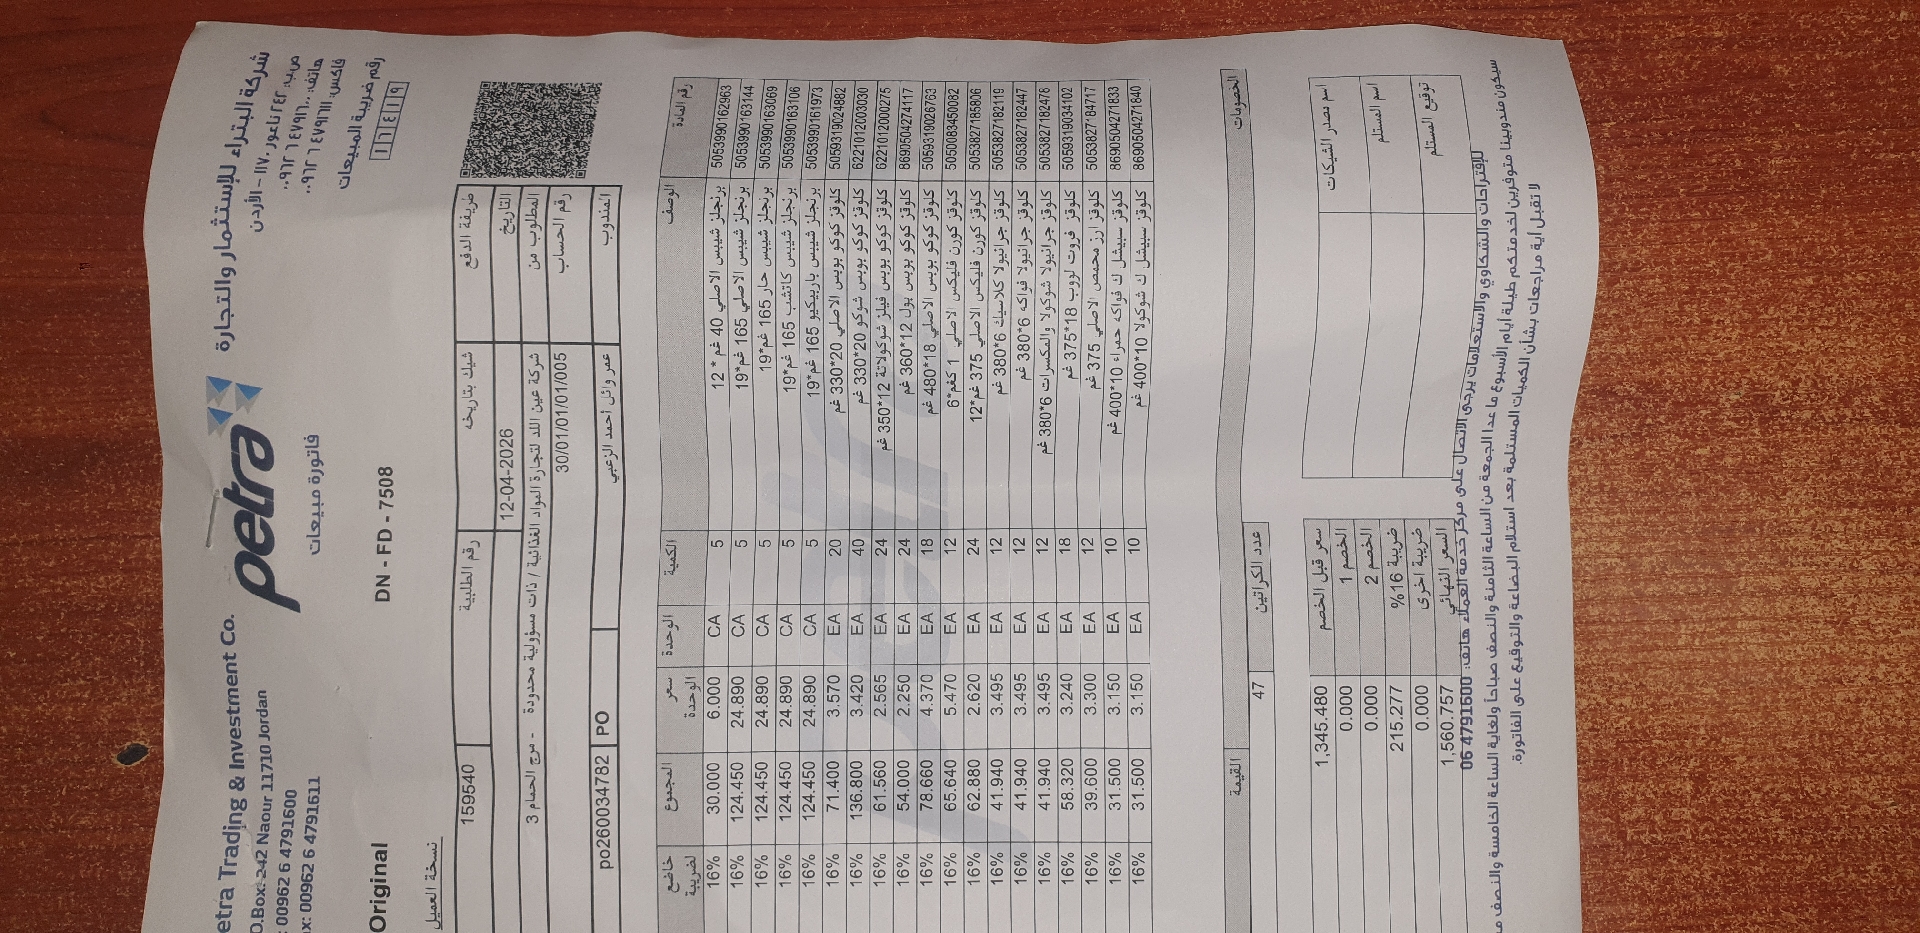 شركة البتراء للإستثمار والتجارة
ص.ب: ٢٤٢ ناعور ١١٧١٠ – الأردن
هاتف: ٤٧٩١٦٠٠ ٦ ٠٠٩٦٢
فاكس: ٤٧٩١٦١١ ٦ ٠٠٩٦٢
petra
etra Trading & Investment Co.
O.Box: 242 Naour 11710 Jordan
: 00962 6 4791600
x: 00962 6 4791611
رقم ضريبة المبيعات
فاتورة مبيعات
DN - FD - 7508
Original
نسخة العميل
طريقة الدفع شيك بتاريخه رقم الطلبية 159540
التاريخ 12-04-2026
المطلوب من شركة عين اللد لتجارة المواد الغذائية / ذات مسؤولية محدودة - مرج الحمام 3
رقم الحساب 30/01/01/01/005
المندوب عمر وائل أحمد الزعبي PO po2600034782
رقم المادة الوصف الكمية الوحدة سعر الوحدة المجموع خاضع لضريبة
5053990162963 برنجلز شيبس الاصلي 40 غم * 12 5 CA 6.000 30.000 16%
5053990163144 برنجلز شيبس الاصلي 165 غم*19 5 CA 24.890 124.450 16%
5053990163069 برنجلز شيبس حار 165 غم*19 5 CA 24.890 124.450 16%
5053990163106 برنجلز شيبس كاتشب 165 غم*19 5 CA 24.890 124.450 16%
5053990161973 برنجلز شيبس باربيكيو 165 غم*19 5 CA 24.890 124.450 16%
5059319024882 كلوقز كوكو بوبس الاصلي 20*330 غم 20 EA 3.570 71.400 16%
6221012003030 كلوقز كوكو بوبس شوكو 20*330 غم 40 EA 3.420 136.800 16%
6221012000275 كلوقز كوكو بوبس فيلز شوكولاتة 12*350 غم 24 EA 2.565 61.560 16%
8690504274117 كلوقز كوكو بوبس بول 12*360 غم 24 EA 2.250 54.000 16%
5059319026763 كلوقز كوكو بوبس الاصلي 18*480 غم 18 EA 4.370 78.660 16%
5050083450082 كلوقز كورن فليكس الاصلي 1 كغم*6 12 EA 5.470 65.640 16%
5053827185806 كلوقز كورن فليكس الاصلي 375 غم*12 24 EA 2.620 62.880 16%
5053827182119 كلوقز جرانيولا كلاسيك 6*380 غم 12 EA 3.495 41.940 16%
5053827182447 كلوقز جرانيولا فواكه 6*380 غم 12 EA 3.495 41.940 16%
5053827182478 كلوقز جرانيولا شوكولا والمكسرات 6*380 غم 12 EA 3.495 41.940 16%
5059319034102 كلوقز فروت لووب 18*375 غم 18 EA 3.240 58.320 16%
5053827184717 كلوقز ارز محمص الاصلي 375 12 EA 3.300 39.600 16%
8690504271833 كلوقز سبيشل ك فواكه حمراء 10*400 غم 10 EA 3.150 31.500 16%
8690504271840 كلوقز سبيشل ك شوكولا 10*400 غم 10 EA 3.150 31.500 16%
الخصومات القيمة
عدد الكراتين 47
اسم مصدر الشيكات
اسم المستلم
توقيع المستلم
سعر قبل الخصم 1,345.480
الخصم 1 0.000
الخصم 2 0.000
ضريبة 16% 215.277
ضريبة اخرى 0.000
السعر النهائي 1,560.757
للإقتراحات والشكاوي والاستعلامات يرجى الاتصال على مركز خدمة العملاء هاتف: 06 4791600
سيكون مندوبينا متوفرين لخدمتكم طيلة أيام الأسبوع ما عدا الجمعة من الساعة الثامنة والنصف صباحاً ولغاية الساعة الخامسة والنصف
لا تقبل أية مراجعات بشأن الكميات المستلمة بعد استلام البضاعة والتوقيع على الفاتورة.